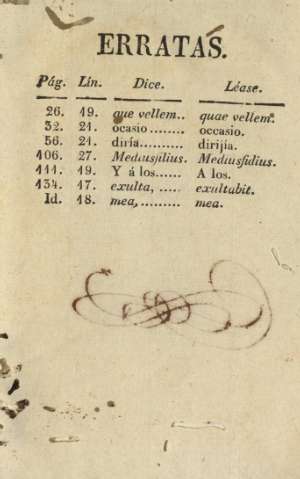 ERRATAS.
Pág. Lín. Dice. Léase.
26. 19. que vellem.. quae vellem.
32. 21. ocasio........ occasio.
56. 21. diría.......... dirijía.
106. 27. Mediusfilius. Mediusfidius.
111. 19. Y á los...... A los.
134. 17. exulta, ..... exultabit.
Id. 18. mea,......... mea.